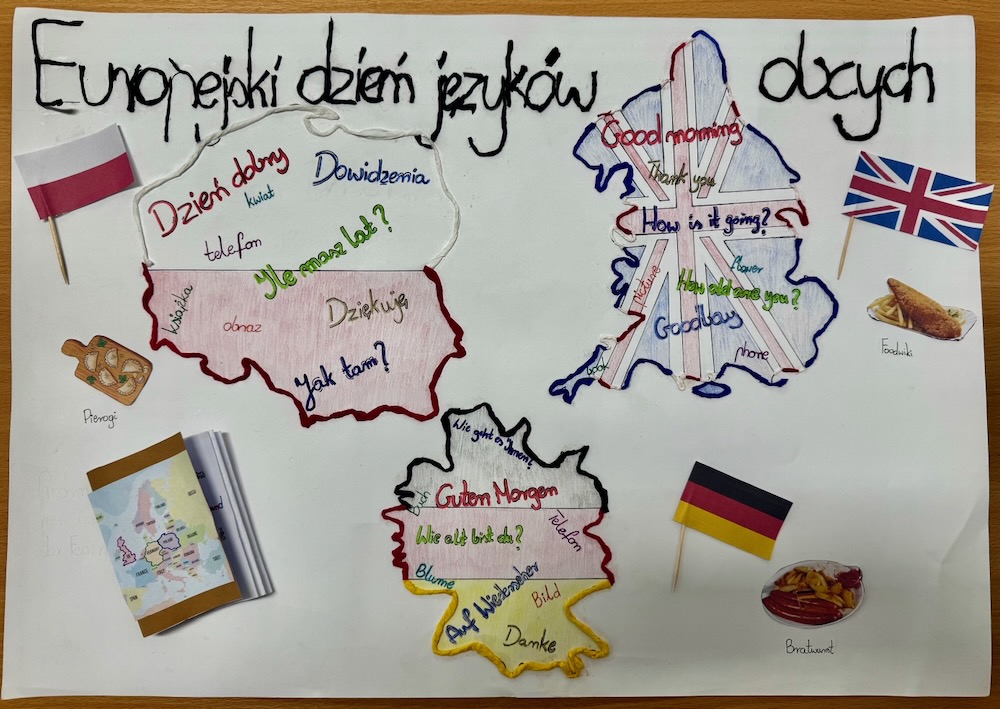 Europejski dzień języków obcych
Dzień dobry
Dowidzenia
kwiat
telefon
Ile masz lat?
książka
obraz
Dziękuję
Jak tam?
Pierogi
Good morning
Thank you
How is it going?
picture
flower
How old are you?
Goodbay
book
phone
Wie geht es Ihnen?
Buch
Guten Morgen
Telefon
Wie alt bist du?
Blume
Auf Wiedersehen
Bild
Danke
Bratwurst
FRANCE
SPAIN